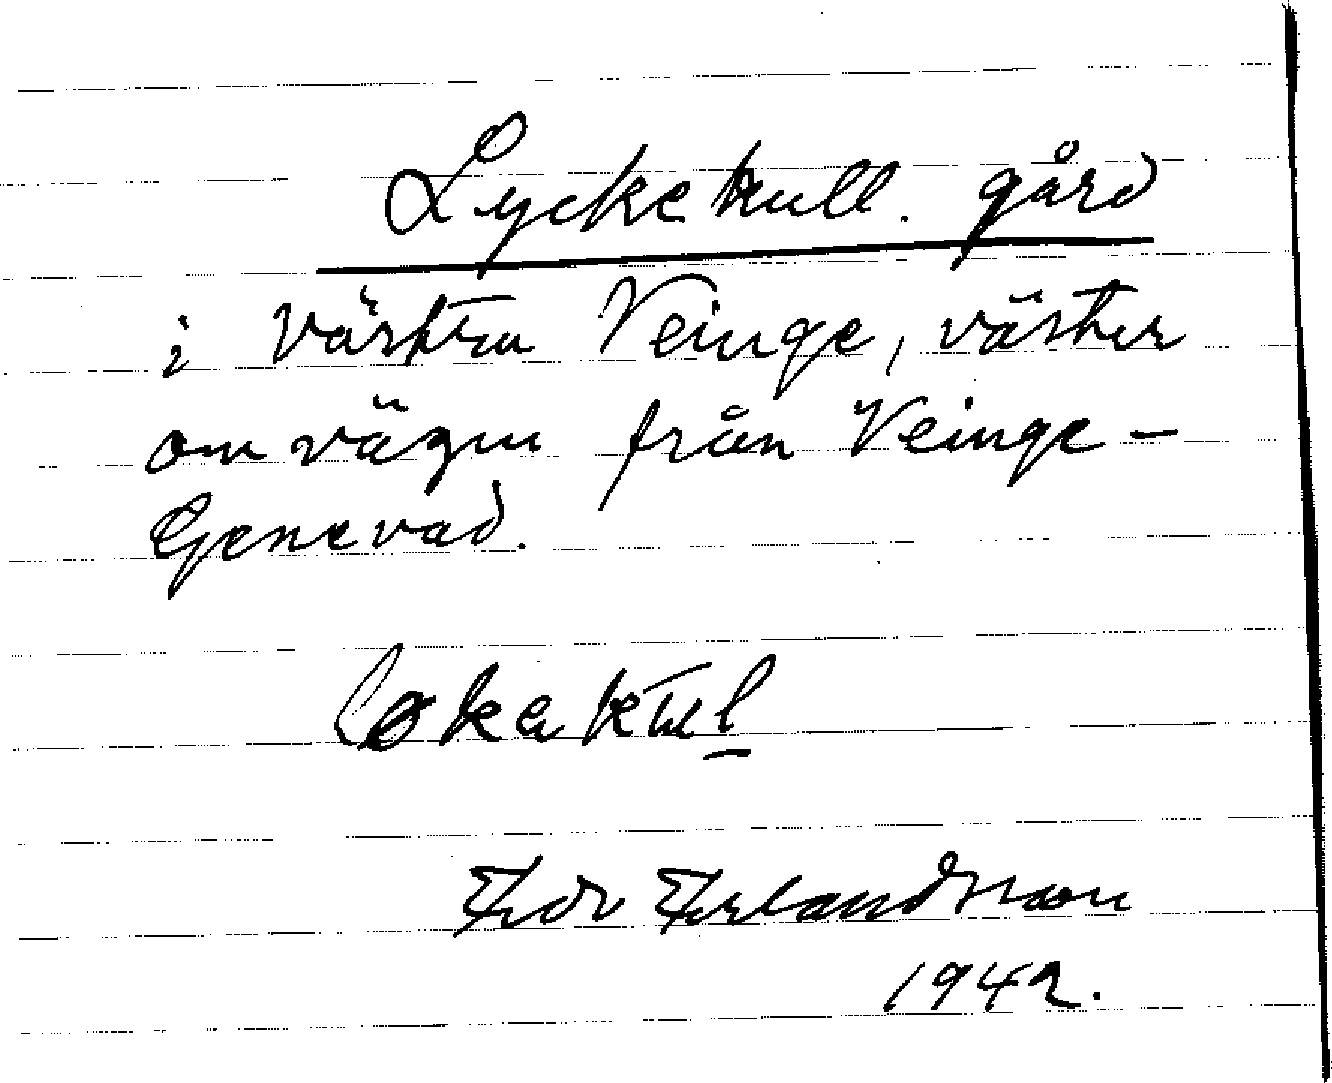 Lyckekull. gård
i västra Veinge, väster
om vägen från Veinge –
Genevad.
Erlandsson
1942.